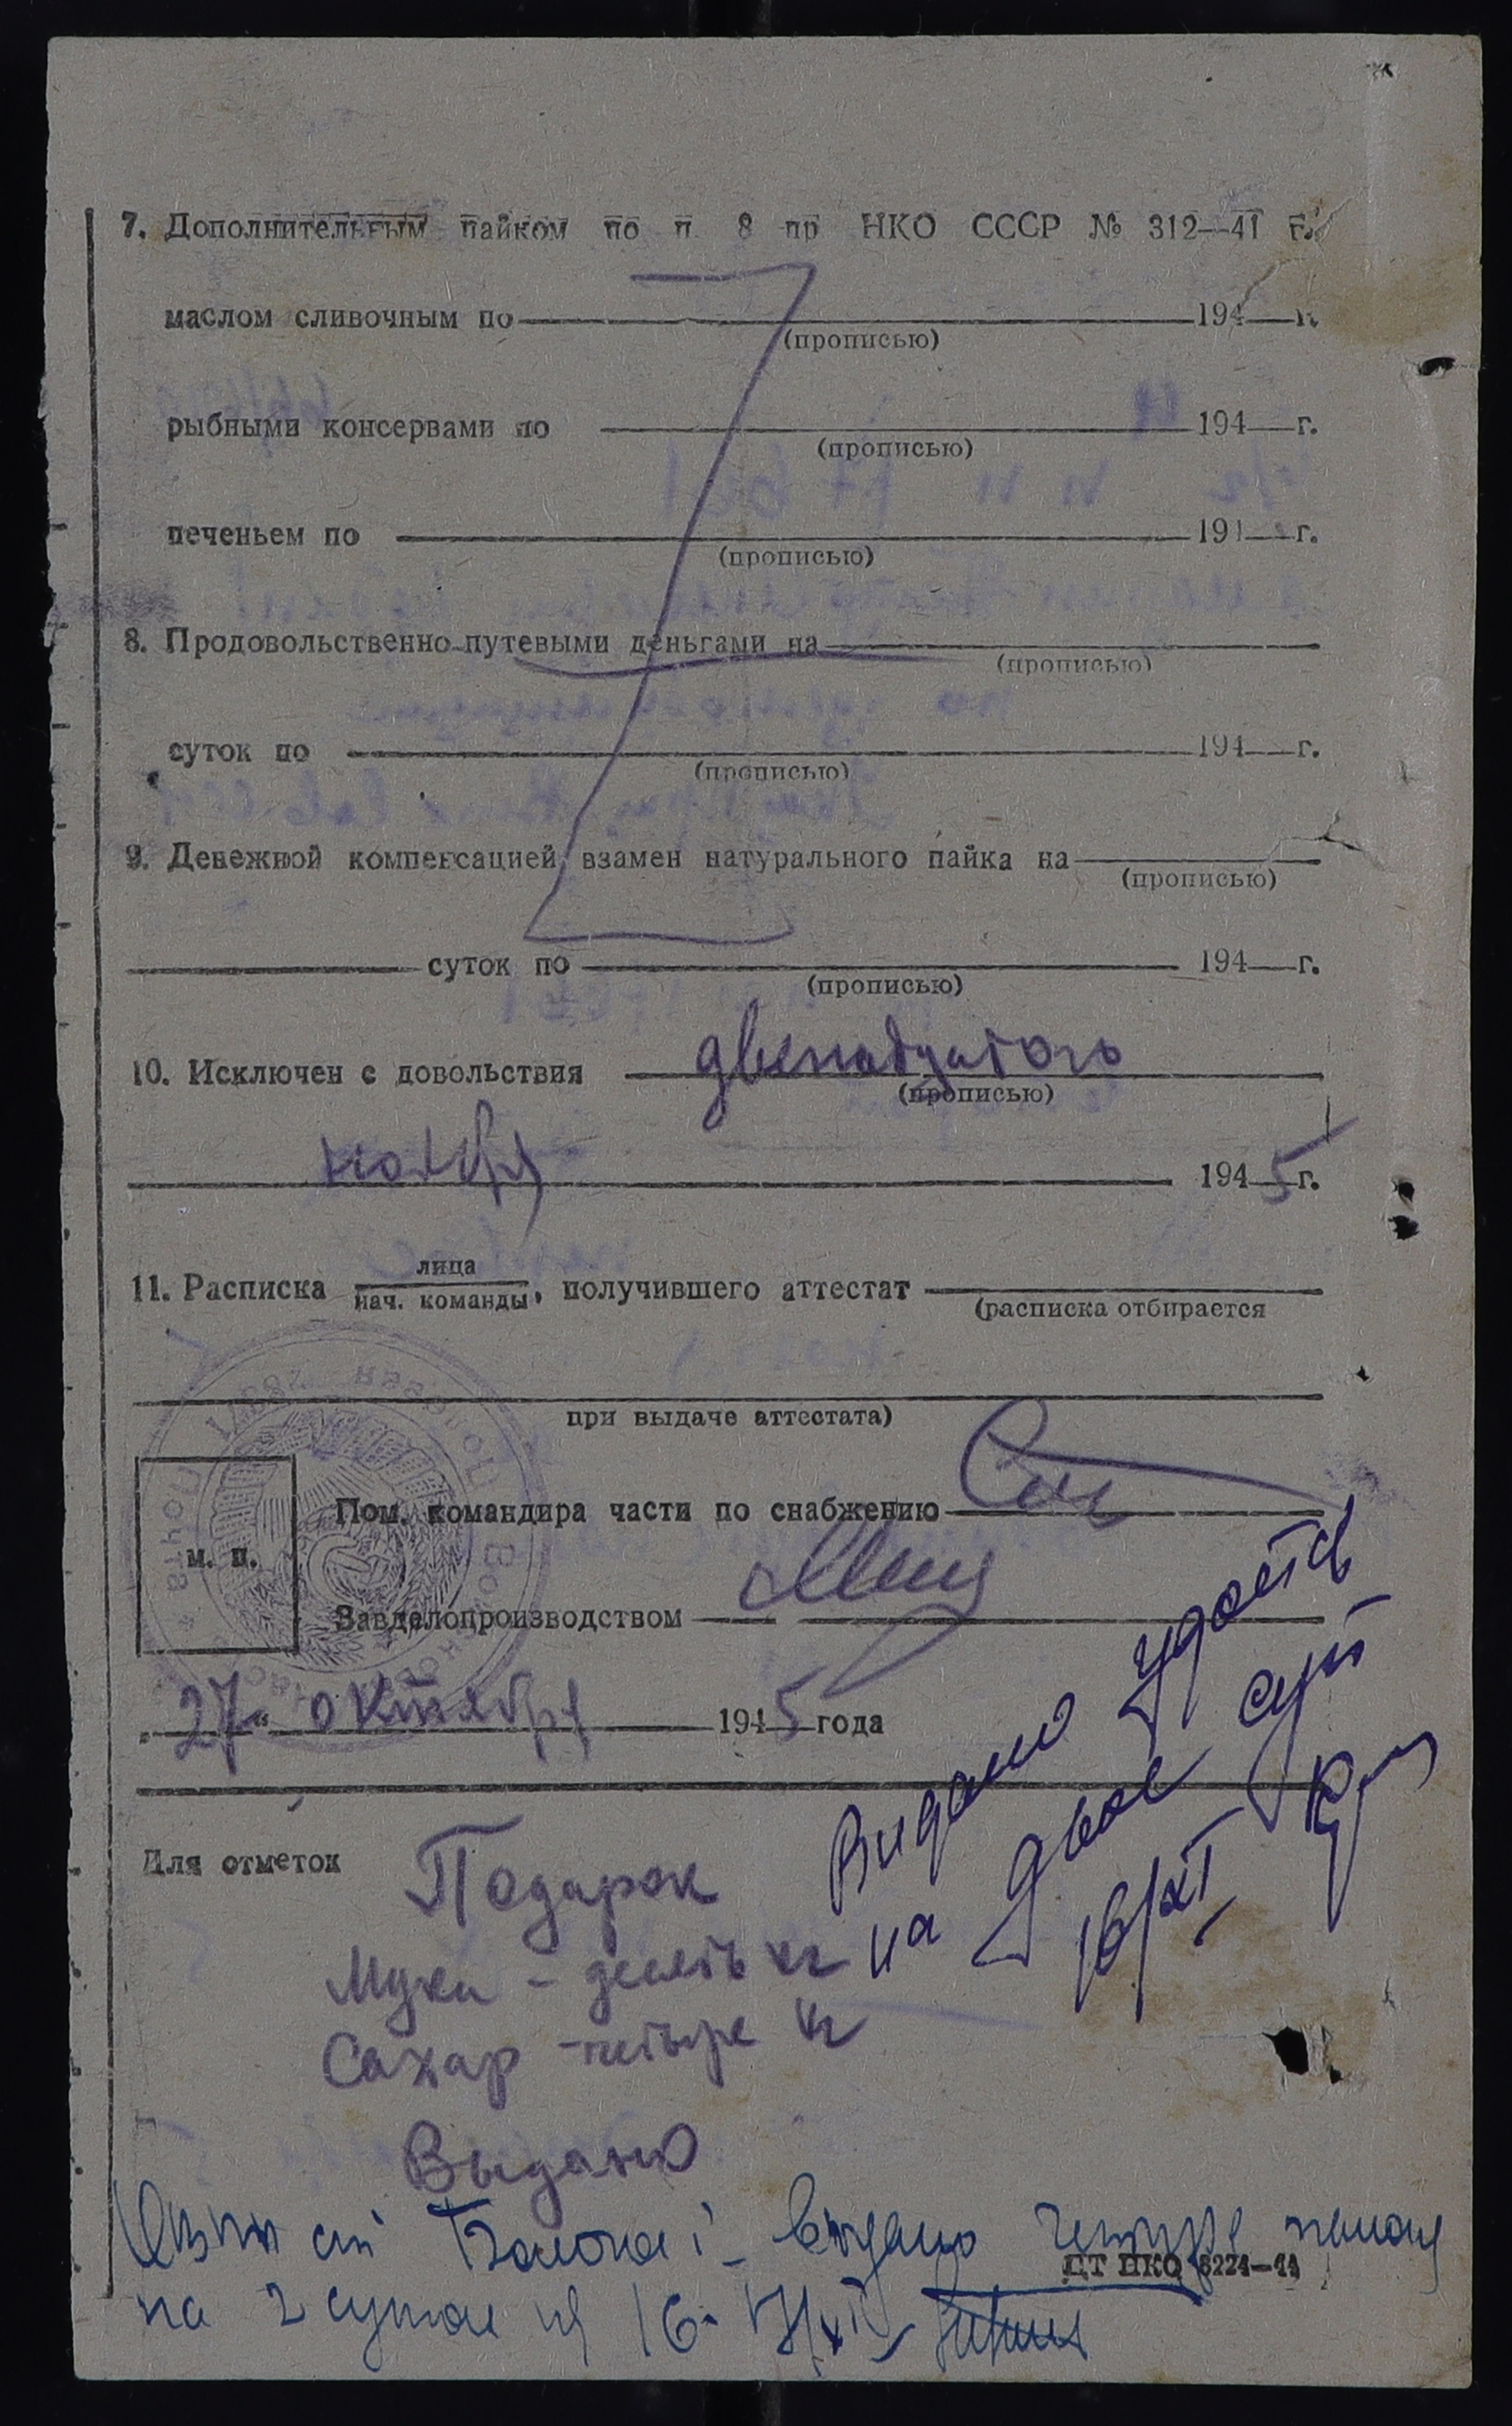 7. Дополнительным пайком по п 8 пр НКО СССР № 312—41 г.
маслом сливочным по 194 г.
(прописью)
рыбными консервами по 194 г.
(прописью)
печеньем по 194 г.
(прописью)
8. Продовольственно-путевыми деньгами на
(прописью)
суток по 194 г.
(прописью)
9. Денежной компенсацией взамен натурального пайка на
(прописью)
суток по 194 г.
(прописью)
10. Исключен с довольствия двенадцатого
(прописью)
ноября 1945 г.
11. Расписка лица
нач. команды, получившего аттестат
(расписка отбирается
при выдаче аттестата)
Пом. командира части по снабжению
м. п.
Завделопроизводством
„27“ октября 1945 года
Для отметок
Подарок
Мука - десять кг
Сахар - четыре кг
Выдано
Выдано
на двое сут
16/XI
ст выдано
ЦТ НКО 6224—44
на 2 суток 16-17/XI